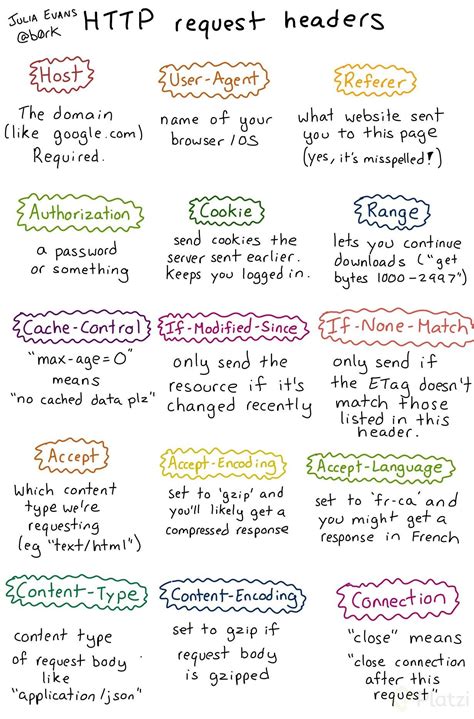 JULIA EVANS
@b0rk
HTTP request headers
Host
The domain
(like google.com)
Required.
User-Agent
name of your
browser/OS
Referer
what website sent
you to this page
(yes, it's misspelled!)
Authorization
a password
or something
Cookie
send cookies the
server sent earlier.
keeps you logged in.
Range
lets you continue
downloads ("get
bytes 1000-2997")
Cache-Control
"max-age=0"
means
"no cached data plz"
If-Modified-Since
only send the
resource if it's
changed recently
If-None-Match
only send if
the ETag doesn't
match those
listed in this
header.
Accept
which content
type we're
requesting
(eg "text/html")
Accept-Encoding
set to 'gzip' and
you'll likely get a
compressed response
Accept-Language
set to 'fr-ca' and
you might get a
response in French
Content-Type
content type
of request body
like
"application/json"
Content-Encoding
set to gzip if
request body
is gzipped
Connection
"close" means
"close connection
after this
request"
Platzi